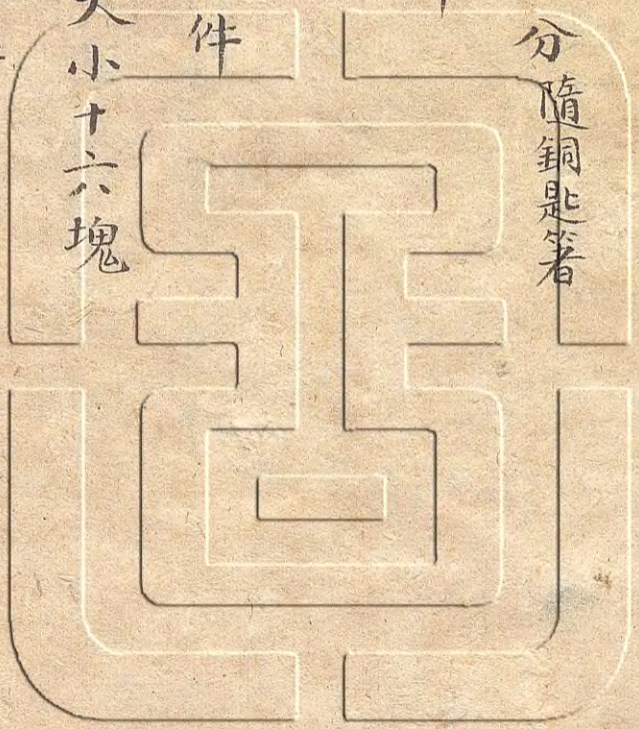 分隨銅匙箸
件
大小十六塊